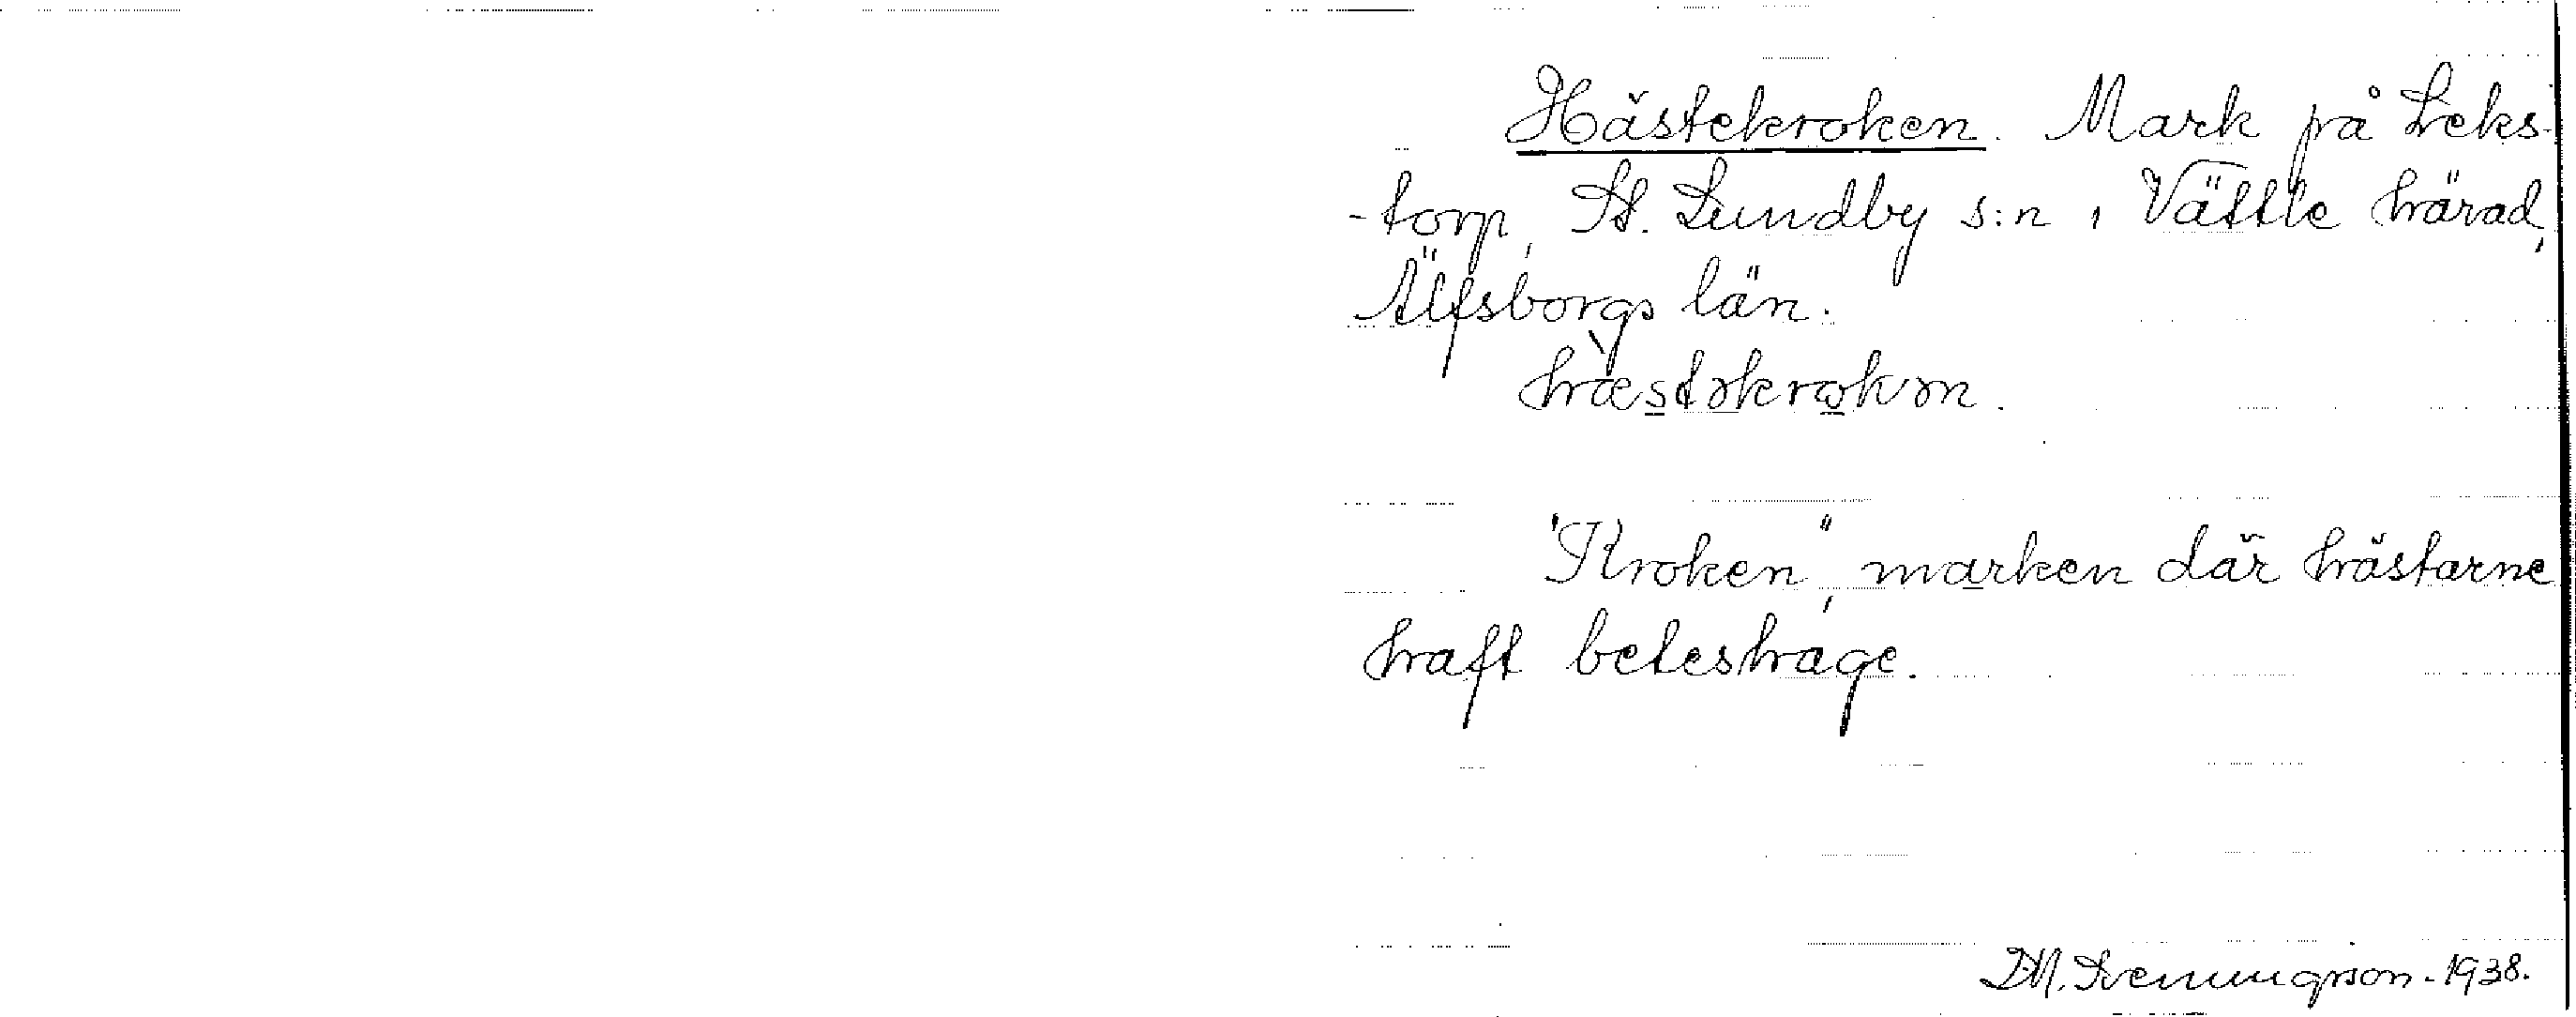 Hästekroken. Mark på Leks-
-torp, St. Lundby s:n, Vättle härad,
Älfsborgs län.
hæstəkrokən.
"Kroken", marken där hästarne
haft beteshage.
D.M. Svenungsson - 1938.